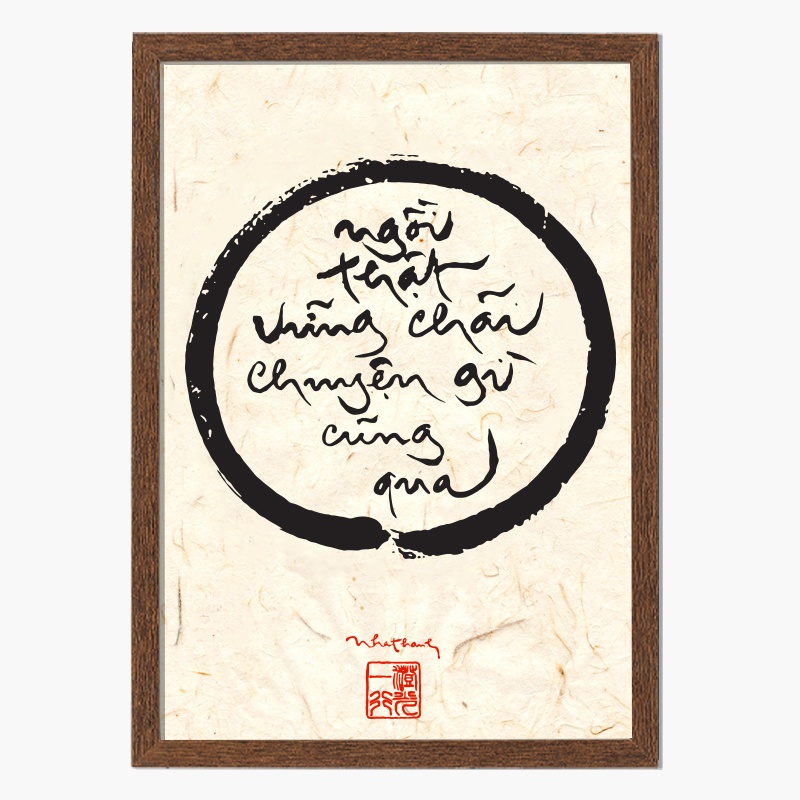 ngồi
thật
vững chãi
chuyện gì
cũng
qua
nhathanh
一行
澄光